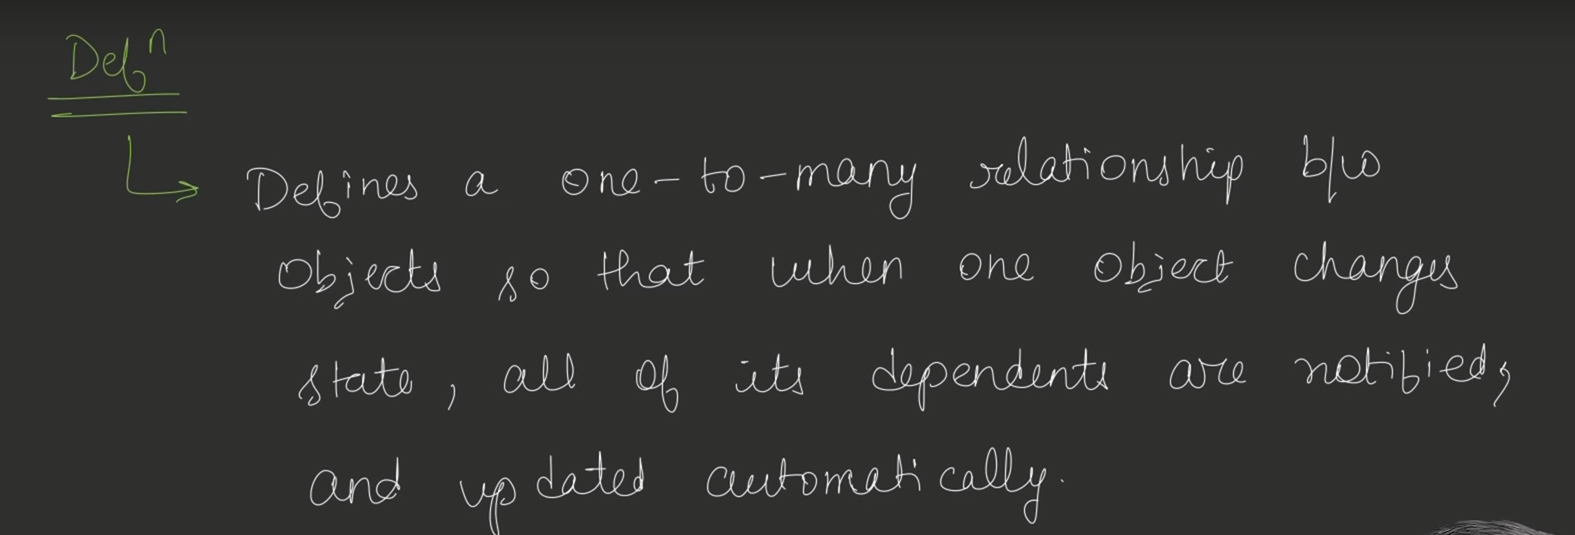 Defⁿ
Defines a one-to-many relationship b/w
Objects so that when one object changes
state, all of its dependents are notified,
and updated automatically.